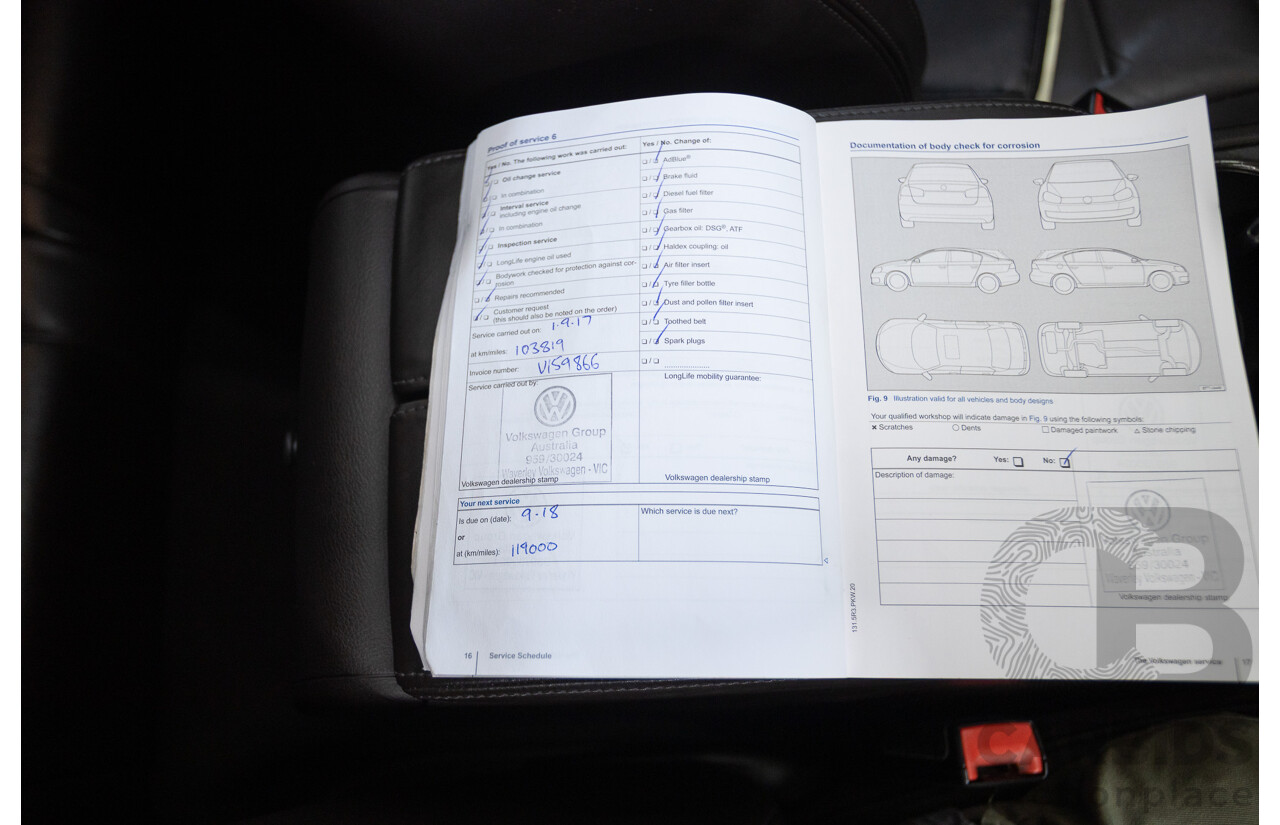 Proof of service 6
Yes / No. The following work was carried out:
Oil change service
In combination
Interval service
including engine oil change
In combination
Inspection service
LongLife engine oil used
Bodywork checked for protection against cor-
rosion
Repairs recommended
Customer request
(this should also be noted on the order)
Service carried out on: 1.9.17
at km/miles: 103819
Invoice number: VI59866
Service carried out by:
Volkswagen Group
Australia
959/30024
Waverley Volkswagen - VIC
Volkswagen dealership stamp
Yes / No. Change of:
AdBlue®
Brake fluid
Diesel fuel filter
Gas filter
Gearbox oil: DSG®, ATF
Haldex coupling: oil
Air filter insert
Tyre filler bottle
Dust and pollen filter insert
Toothed belt
Spark plugs
LongLife mobility guarantee:
Volkswagen dealership stamp
Your next service
Is due on (date): 9.18
or
at (km/miles): 119000
Which service is due next?
16 Service Schedule
Documentation of body check for corrosion
Fig. 9 Illustration valid for all vehicles and body designs
Your qualified workshop will indicate damage in Fig. 9 using the following symbols:
× Scratches ○ Dents □ Damaged paintwork △ Stone chipping
Any damage? Yes: No:
Description of damage:
Volkswagen Group
Australia
959/30024
Waverley Volkswagen - VIC
Volkswagen dealership stamp
131.5R3.PKW.20
The Volkswagen service 17